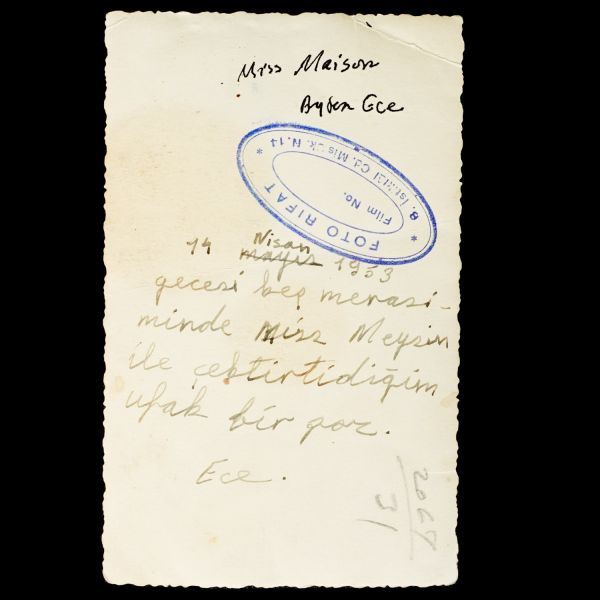 Miss Maison
Ayten Ece
FOTO RIFAT
B. İstiklâl Cd. Mis Sk. N. 14
Film No.
14 Nisan
mayis 1953
gecesi beş merasi-
minde Miss Meysin
ile çektirtidiğim
ufak bir poz.
Ece.
2068
31